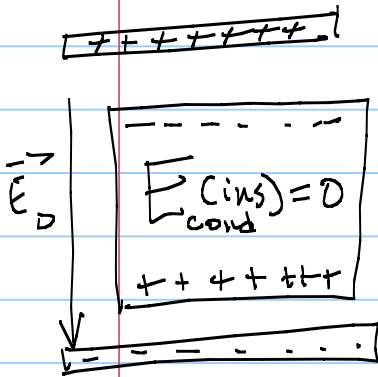 + + + + + + +
- - - - - -
E⃗₀
E_cond (ins) = 0
+ + + + + + +
- - - - - - -